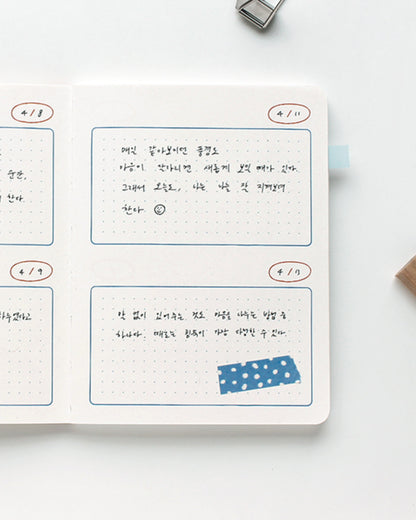 4/8
순간,
한다.
4/9
4/11
매일 같아보이던 풍경도
마음이 잔잔하면 새롭게 보일 때가 있다.
그래서 오늘도, 나는 나를 잘 지켜보려
한다
4/13
말 없이 있어주는 것도 마음을 나누는 방법 중
하나이다. 때로는 침묵이 가장 다정할 수 있다.